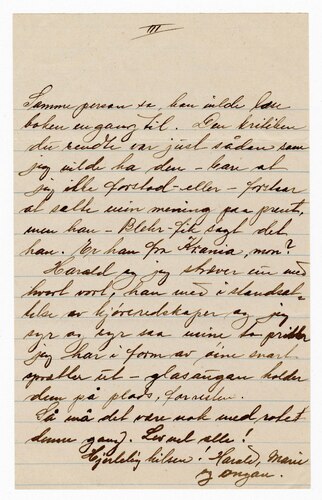 III
Samme person sa, han vilde læse
boken engang til. Den kritiken
du sendte var just sådan som
jeg vilde ha den - bare at
jeg ikke forstod - eller - forstaar
at sætte min mening paa prent,
men han - Blehr - fik sagt det
han. Er han fra Krania, mon?
Harald og jeg stræver nu med
hvort vort, han med istandsæt=
telse av kjøreredskaper og jeg
syr og syr saa mine to prikker
jeg har i form av øine snart
spratler ut - glasaugan holder
dem på plads, forresten.
Så må det være nok med rotet
denne gang. Lev vel alle!
Hjertelig hilsen! Harald, Marie
og ongan.